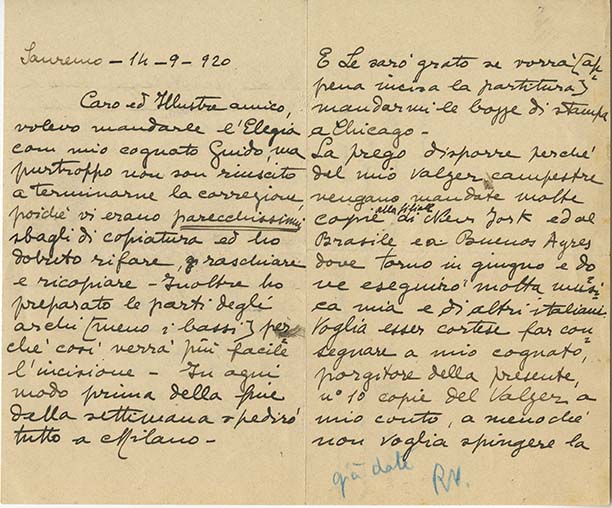 Sanremo - 14 - 9 - 920
Caro ed Illustre amico,
volevo mandarle l'Elegia
com mio cognato Guido, ma
purtroppo non son riuscito
a terminarne la correzione,
poiché vi erano parecchissimi
sbagli di copiatura ed ho
dovuto rifare, raschiare
e ricopiare - Inoltre ho
preparato le parti degli
archi (meno i bassi) per
ché così verrà più facile
l'incisione - In ogni
modo prima della fine
della settimana spedirò
tutto a Milano -
E Le sarò grato se vorrà (ap=
pena incisa la partitura)
mandarmi le bozze di stampa
a Chicago -
La prego disporre perché
del mio Valzer campestre
vengano mandate molte
copie alla filiale di New York ed al
Brasile e a Buenos Ayres
dove torno in giugno e do=
ve eseguirò molta musi=
ca mia e di altri italiani.
Voglia esser cortese far con=
segnare a mio cognato,
porgitore della presente,
n° 10 copie del Valzer a
mio conto, a meno ché
non voglia spingere la
già date
RV.